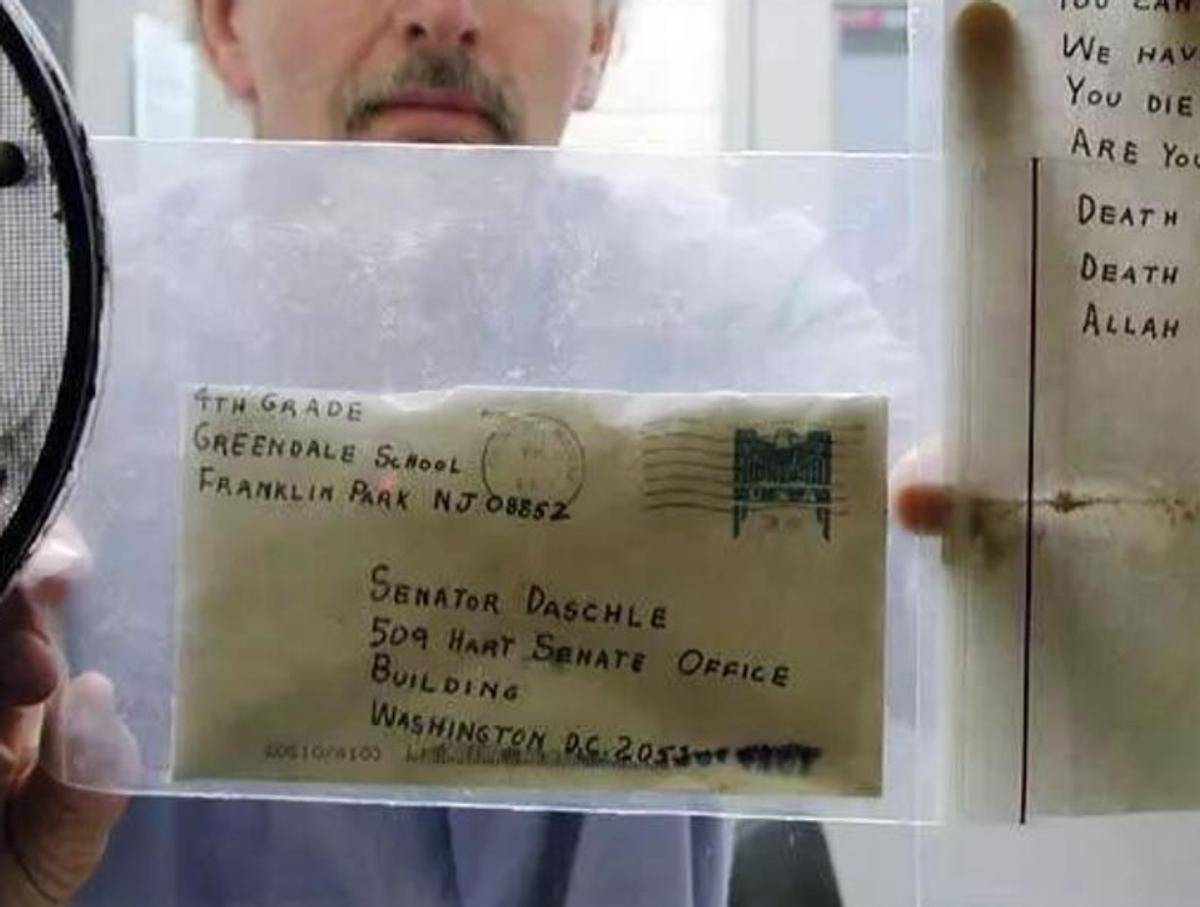 4TH GRADE
GREENDALE SCHOOL
FRANKLIN PARK NJ 08852
SENATOR DASCHLE
509 HART SENATE OFFICE
BUILDING
WASHINGTON D.C. 2053
YOU CAN
WE HAV
YOU DIE
ARE YOU
DEATH
DEATH
ALLAH